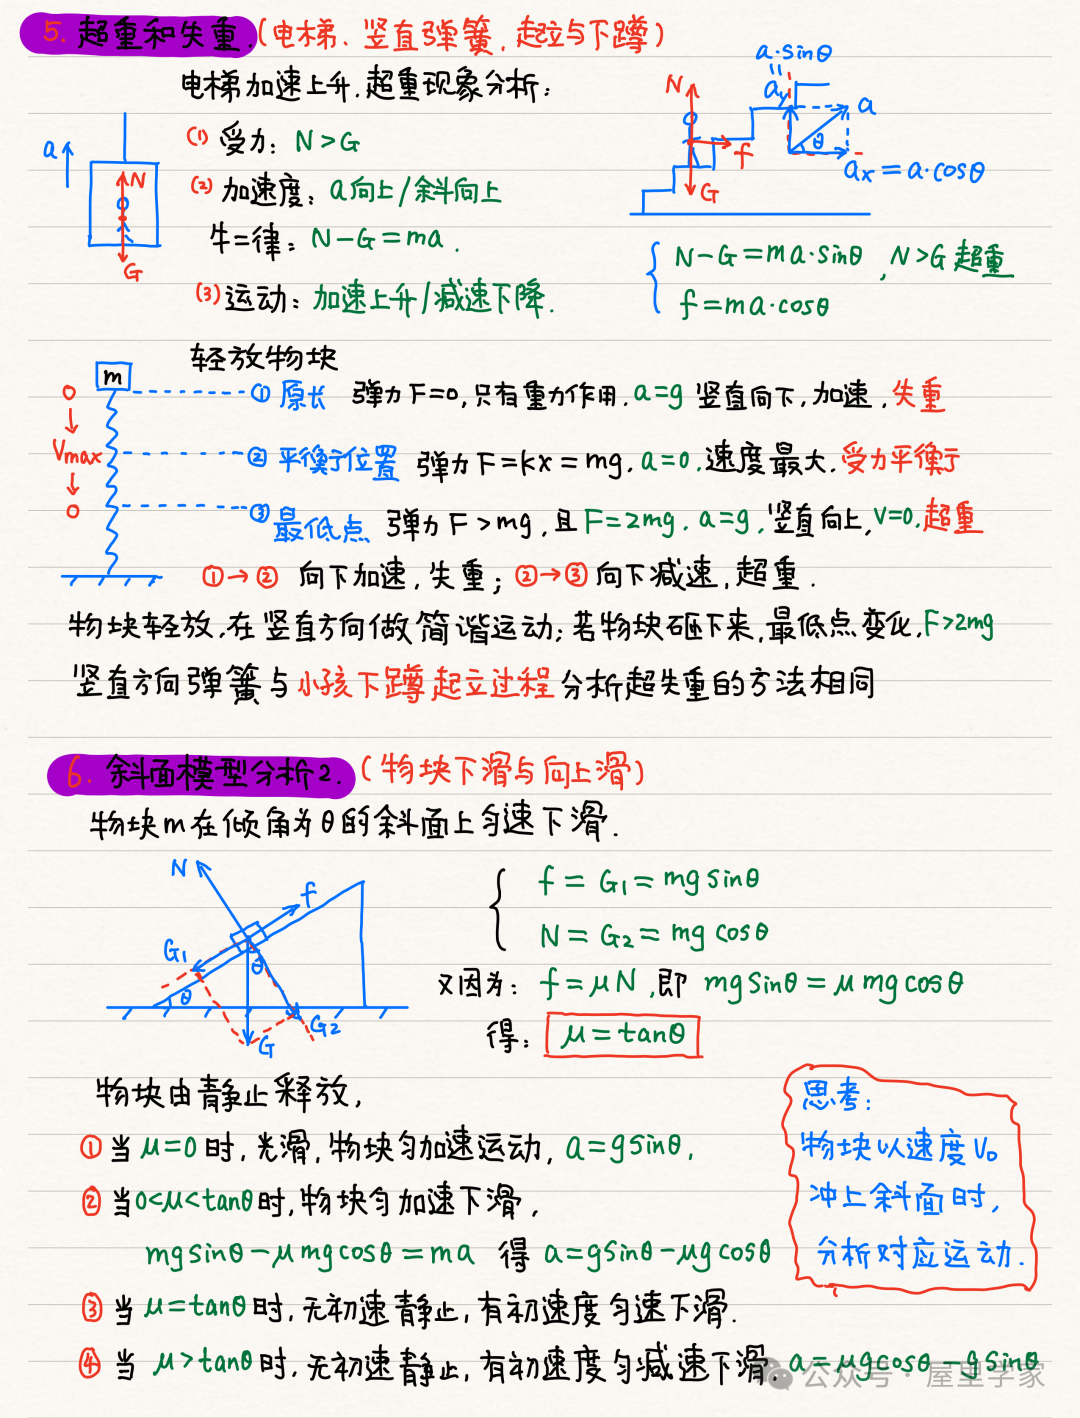 5. 超重和失重.(电梯、竖直弹簧.起立与下蹲)
电梯加速上升.超重现象分析:
(1) 受力: N>G
(2) 加速度: a向上/斜向上
牛二律: N-G=ma.
(3) 运动: 加速上升/减速下降.
a
N
G
N
f
G
a·sinθ
=
ay
a
θ
ax=a·cosθ
N-G=ma·sinθ ,N>G 超重
f=ma·cosθ
轻放物块
m
0
↓
Vmax
↓
0
① 原长 弹力F=0,只有重力作用.a=g 竖直向下,加速.失重
② 平衡位置 弹力F=kx=mg.a=0.速度最大.受力平衡
③ 最低点 弹力F>mg,且F=2mg.a=g,竖直向上,V=0.超重
①→② 向下加速,失重;②→③向下减速,超重.
物块轻放,在竖直方向做简谐运动;若物块砸下来,最低点变化,F>2mg
竖直方向弹簧与小孩下蹲起立过程分析超失重的方法相同
6. 斜面模型分析2.(物块下滑与向上滑)
物块m在倾角为θ的斜面上匀速下滑.
N
f
G1
θ
θ
G2
G
f=G1=mgsinθ
N=G2=mgcosθ
又因为: f=μN,即 mgsinθ=μmgcosθ
得: μ=tanθ
物块由静止释放,
①当μ=0时,光滑,物块匀加速运动,a=gsinθ,
②当0<μ<tanθ时,物块匀加速下滑,
mgsinθ-μmgcosθ=ma 得 a=gsinθ-μgcosθ
③当μ=tanθ时,无初速静止,有初速度匀速下滑.
④当 μ>tanθ时,无初速静止,有初速度匀减速下滑.a=μgcosθ-gsinθ
思考:
物块以速度V0
冲上斜面时,
分析对应运动.
公众号·屋里学家